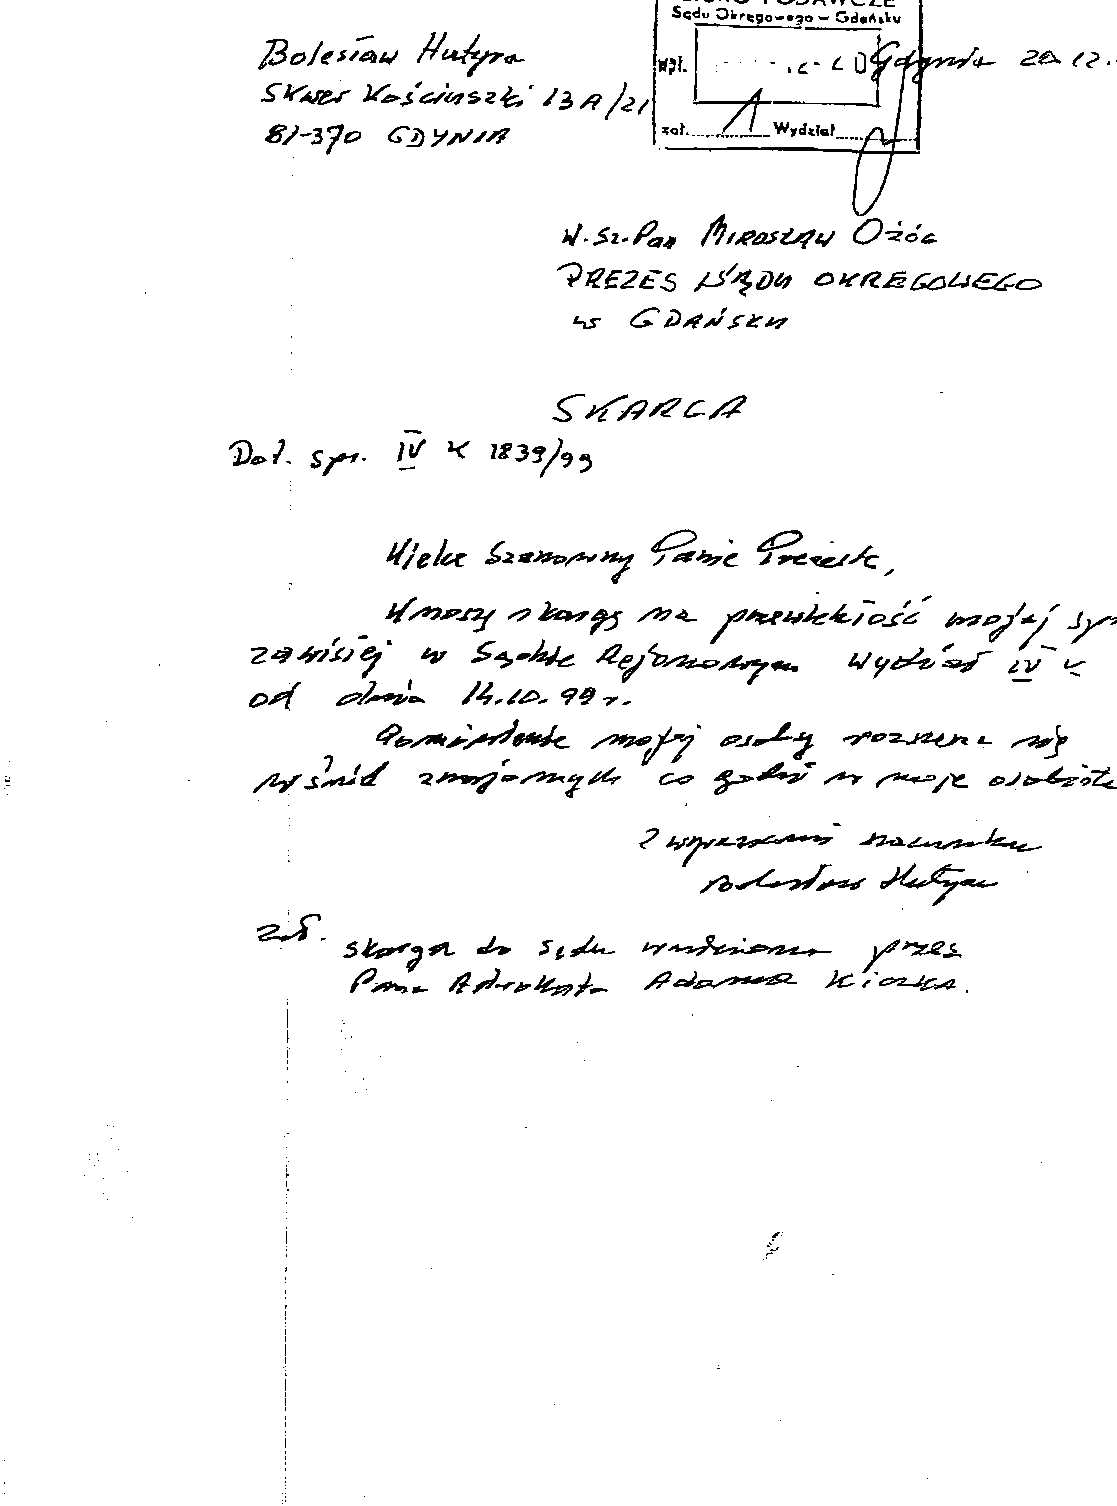 BIURO PODAWCZE
Sądu Okręgowego – Gdańsku
Wpł.
Gdynia 20.12.
zał. Wydział
Bolesław Hutyra
Skwer Kościuszki 13A/21
81-370 GDYNIA
W.Sz.Pan MIROSŁAW OŻÓG
PREZES SĄDU OKRĘGOWEGO
w GDAŃSKU
SKARGA
Dot. spr. IV K 1839/99
Wielce Szanowny Panie Prezesie,
Wnoszę skargę na przewlekłość mojej spr
zawisłej w Sądzie Rejonowym Wydział IV K
od dnia 14.10.99 r.
Pomówienie mojej osoby roznosi się
wśród znajomych co godzi w moje osobiste
Z wyrazami szacunku
Bolesław Hutyra
Zał.
skarga do Sądu wniesiona przez
Pana Adwokata Adama